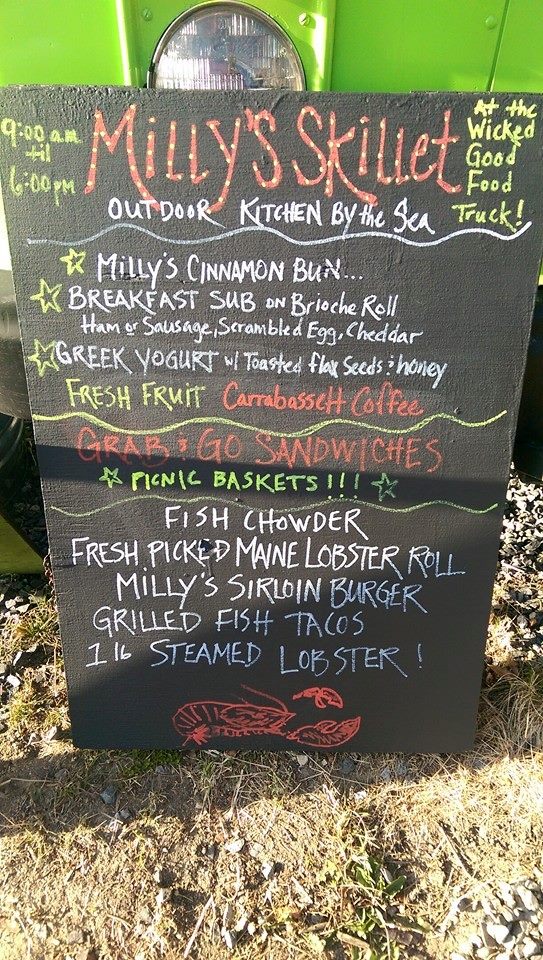 9:00 a.m
til
6:00 pm
Milly's Skillet
At the
Wicked
Good
Food
Truck!
OUTDOOR KITCHEN By the Sea
Milly's CINNAMON BUN...
BREAKFAST SUB on Brioche Roll
Ham or Sausage, Scrambled Egg, Cheddar
GREEK YOGURT w/ Toasted flax Seeds & honey
FRESH FRUIT Carrabassett Coffee
GRAB & GO SANDWICHES
PICNIC BASKETS!!!
FISH CHOWDER
FRESH PICKED MAINE LOBSTER ROLL
MILLY'S SIRLOIN BURGER
GRILLED FISH TACOS
1 lb STEAMED LOBSTER!